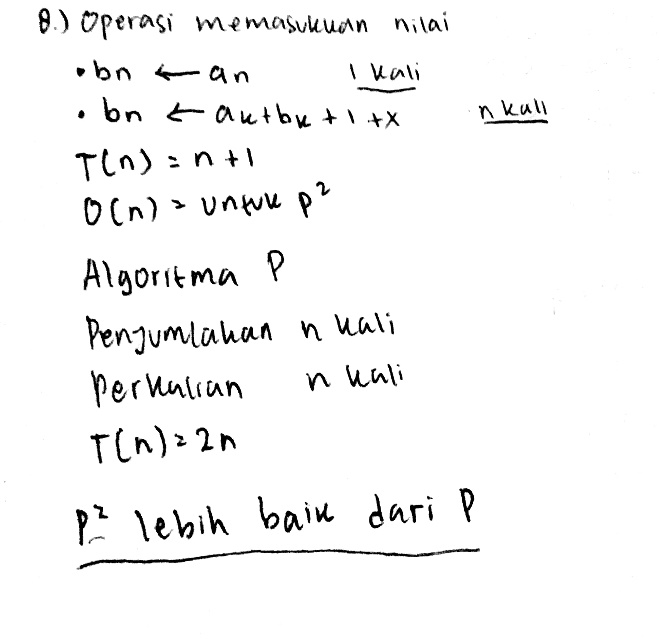 8.) Operasi memasukuan nilai
• bn ← an 1 kali
• bn ← ak+bk + 1 +x n kali
T(n) = n +1
O(n) = untuk p²
Algoritma P
Penjumlahan n kali
perkalian n kali
T(n) = 2n
P² lebih baik dari P